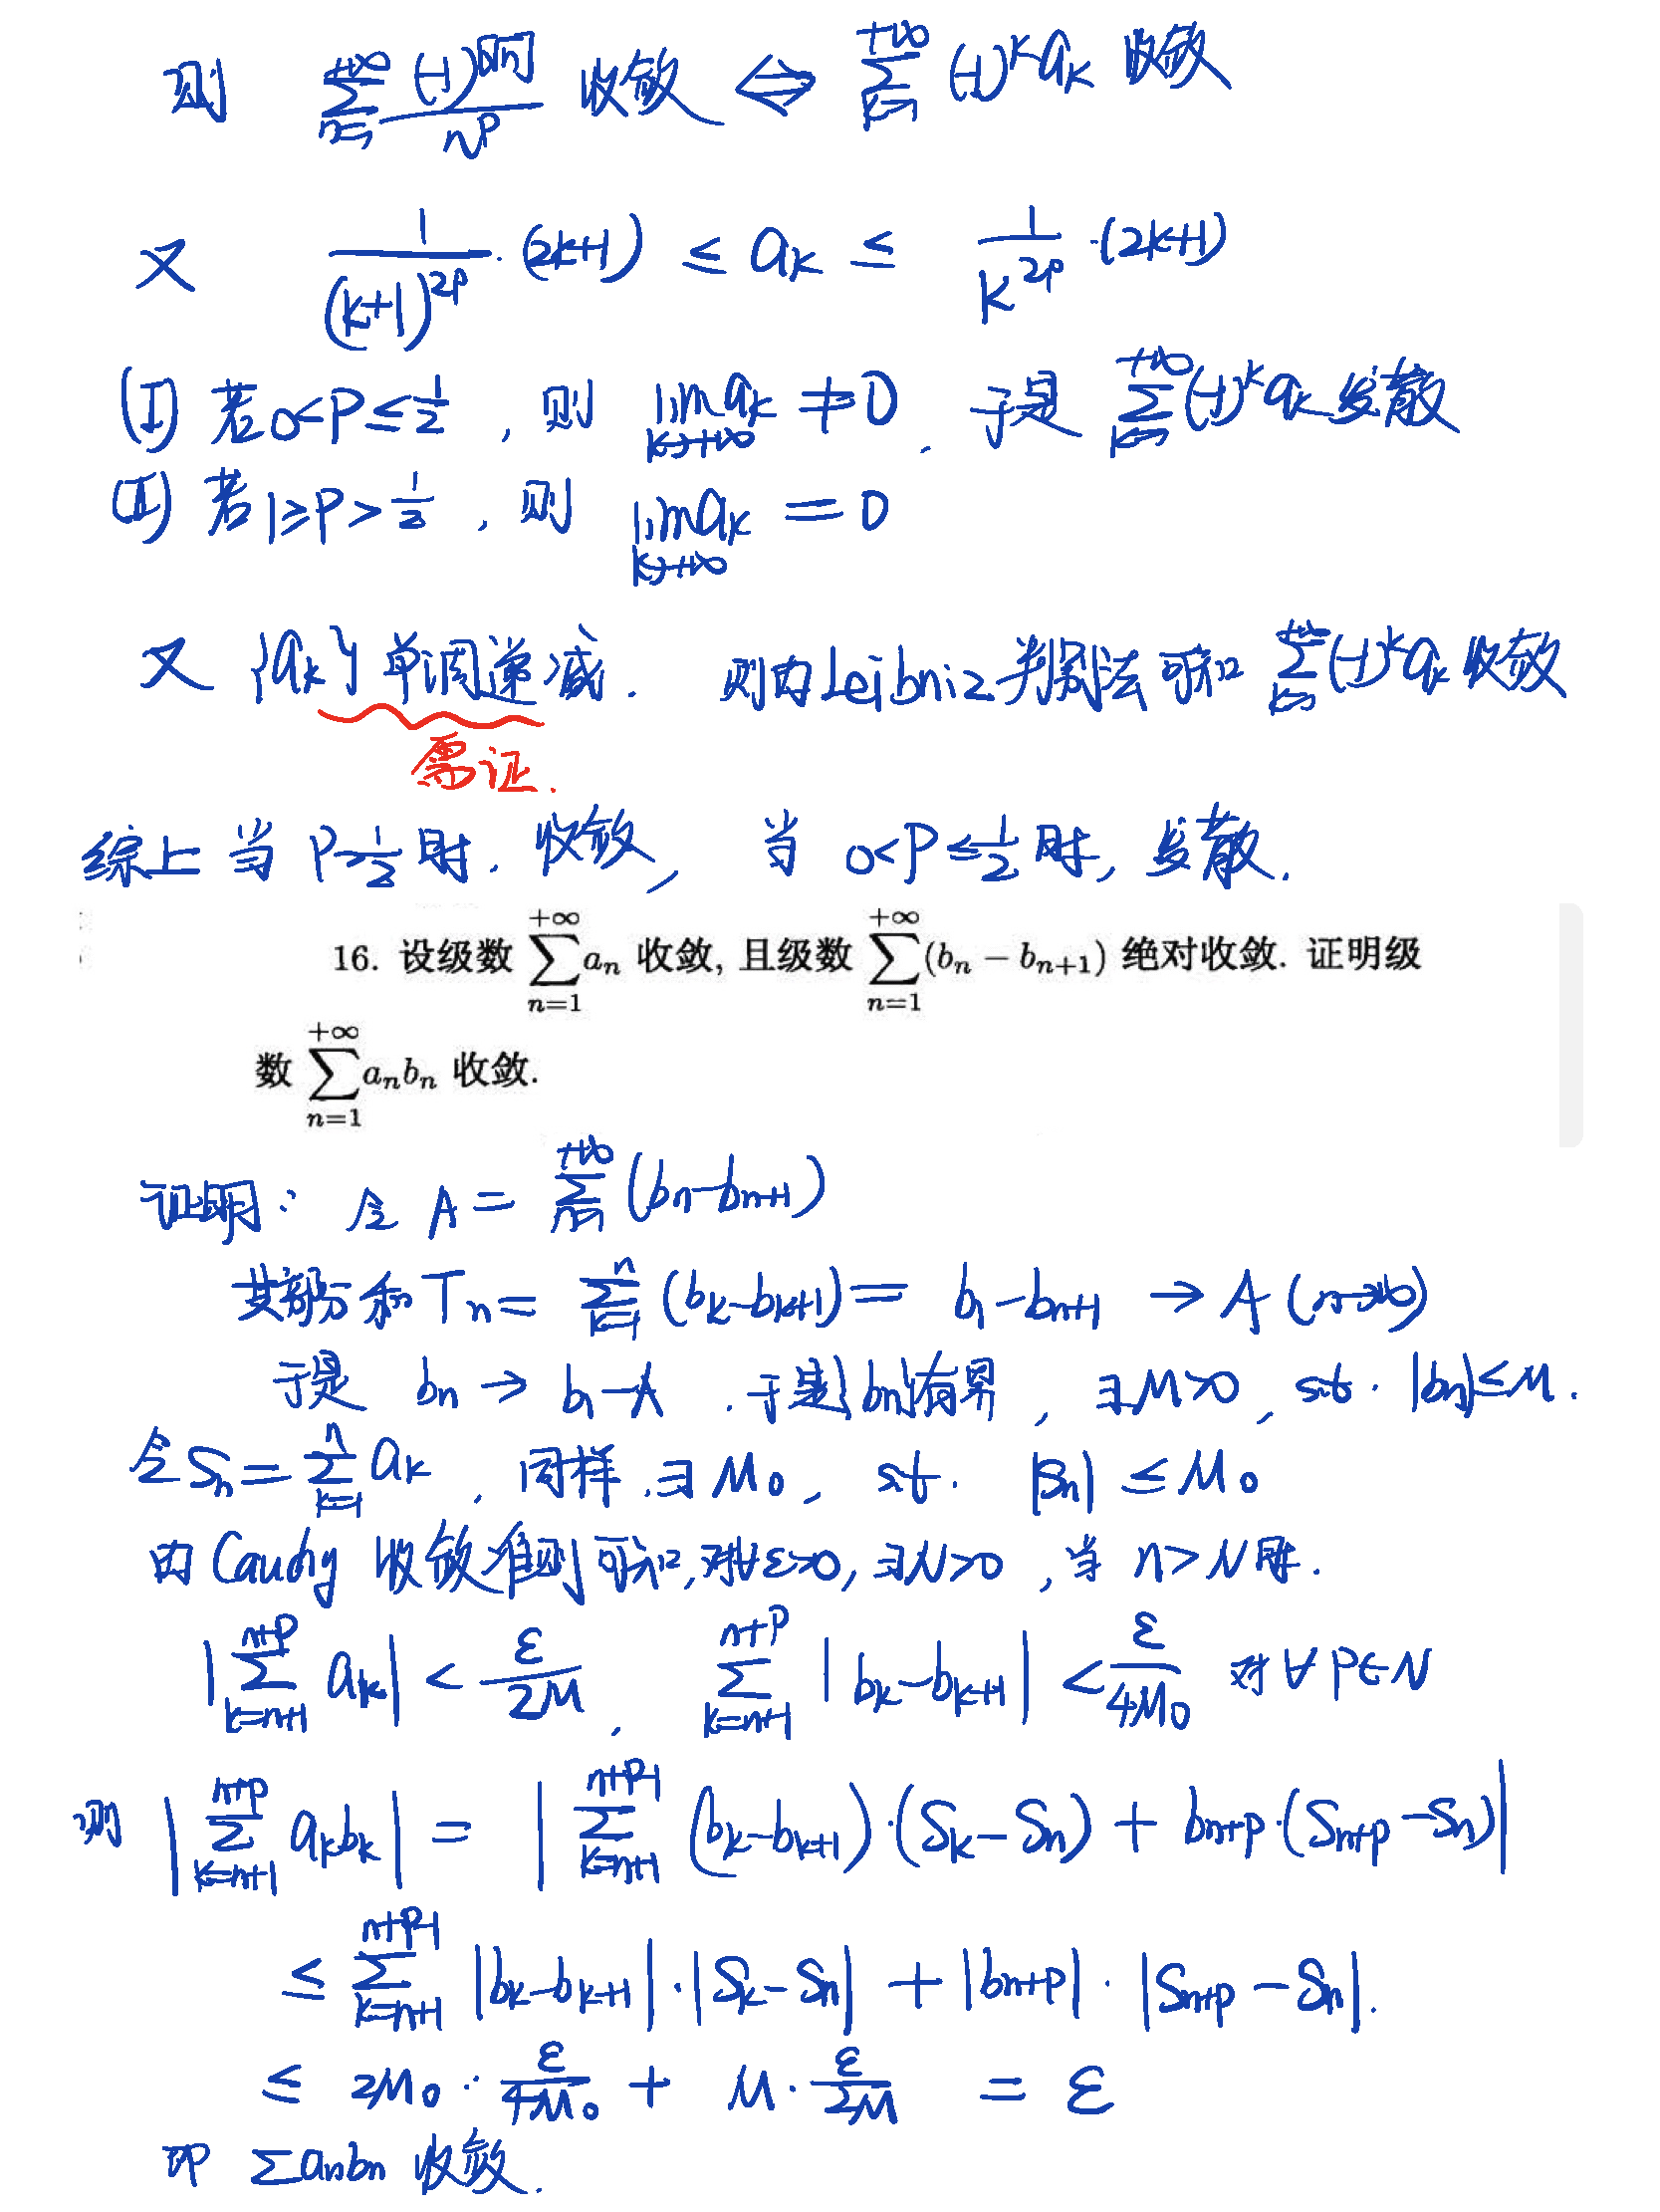 则 $\sum_{n=1}^{+\infty} \frac{(-1)^{[\sqrt{n}]}}{n^p}$ 收敛 $\Leftrightarrow$ $\sum_{k=1}^{+\infty} (-1)^k a_k$ 收敛
又 $\frac{1}{(k+1)^{2p}} \cdot (2k+1) \leq a_k \leq \frac{1}{k^{2p}} \cdot (2k+1)$
(I) 若 $0<p\leq\frac{1}{2}$, 则 $\lim_{k\to+\infty} a_k \neq 0$, 于是 $\sum_{k=1}^{+\infty} (-1)^k a_k$ 发散
(II) 若 $1\geq p>\frac{1}{2}$, 则 $\lim_{k\to+\infty} a_k = 0$
又 $\{a_k\}$ 单调递减. 则由Leibniz判别法可知 $\sum_{k=1}^{+\infty} (-1)^k a_k$ 收敛
需证.
综上 当 $p>\frac{1}{2}$ 时, 收敛, 当 $0<p\leq\frac{1}{2}$ 时, 发散.
16. 设级数 $\sum_{n=1}^{+\infty} a_n$ 收敛, 且级数 $\sum_{n=1}^{+\infty} (b_n - b_{n+1})$ 绝对收敛. 证明级
数 $\sum_{n=1}^{+\infty} a_n b_n$ 收敛.
证明: 令 $A = \sum_{n=1}^{+\infty} (b_n - b_{n+1})$
其部分和 $T_n = \sum_{k=1}^{n} (b_k - b_{k+1}) = b_1 - b_{n+1} \to A (n\to\infty)$
于是 $b_n \to b_1 - A$. 于是$\{b_n\}$有界, $\exists M>0$, s.t. $|b_n| \leq M$.
令 $S_n = \sum_{k=1}^{n} a_k$, 同样, $\exists M_0$, s.t. $|S_n| \leq M_0$
由 Cauchy 收敛准则可知, 对$\forall \varepsilon>0$, $\exists N>0$, 当 $n>N$ 时.
$\left|\sum_{k=n+1}^{n+p} a_k\right| < \frac{\varepsilon}{2M}$, $\sum_{k=n+1}^{n+p} |b_k - b_{k+1}| < \frac{\varepsilon}{4M_0}$ 对 $\forall p\in N$
则 $\left|\sum_{k=n+1}^{n+p} a_k b_k\right| = \left|\sum_{k=n+1}^{n+p-1} (b_k - b_{k+1}) \cdot (S_k - S_n) + b_{n+p} \cdot (S_{n+p} - S_n)\right|$
$\leq \sum_{k=n+1}^{n+p-1} |b_k - b_{k+1}| \cdot |S_k - S_n| + |b_{n+p}| \cdot |S_{n+p} - S_n|.$
$\leq 2M_0 \cdot \frac{\varepsilon}{4M_0} + M \cdot \frac{\varepsilon}{2M} = \varepsilon$
即 $\sum a_n b_n$ 收敛.